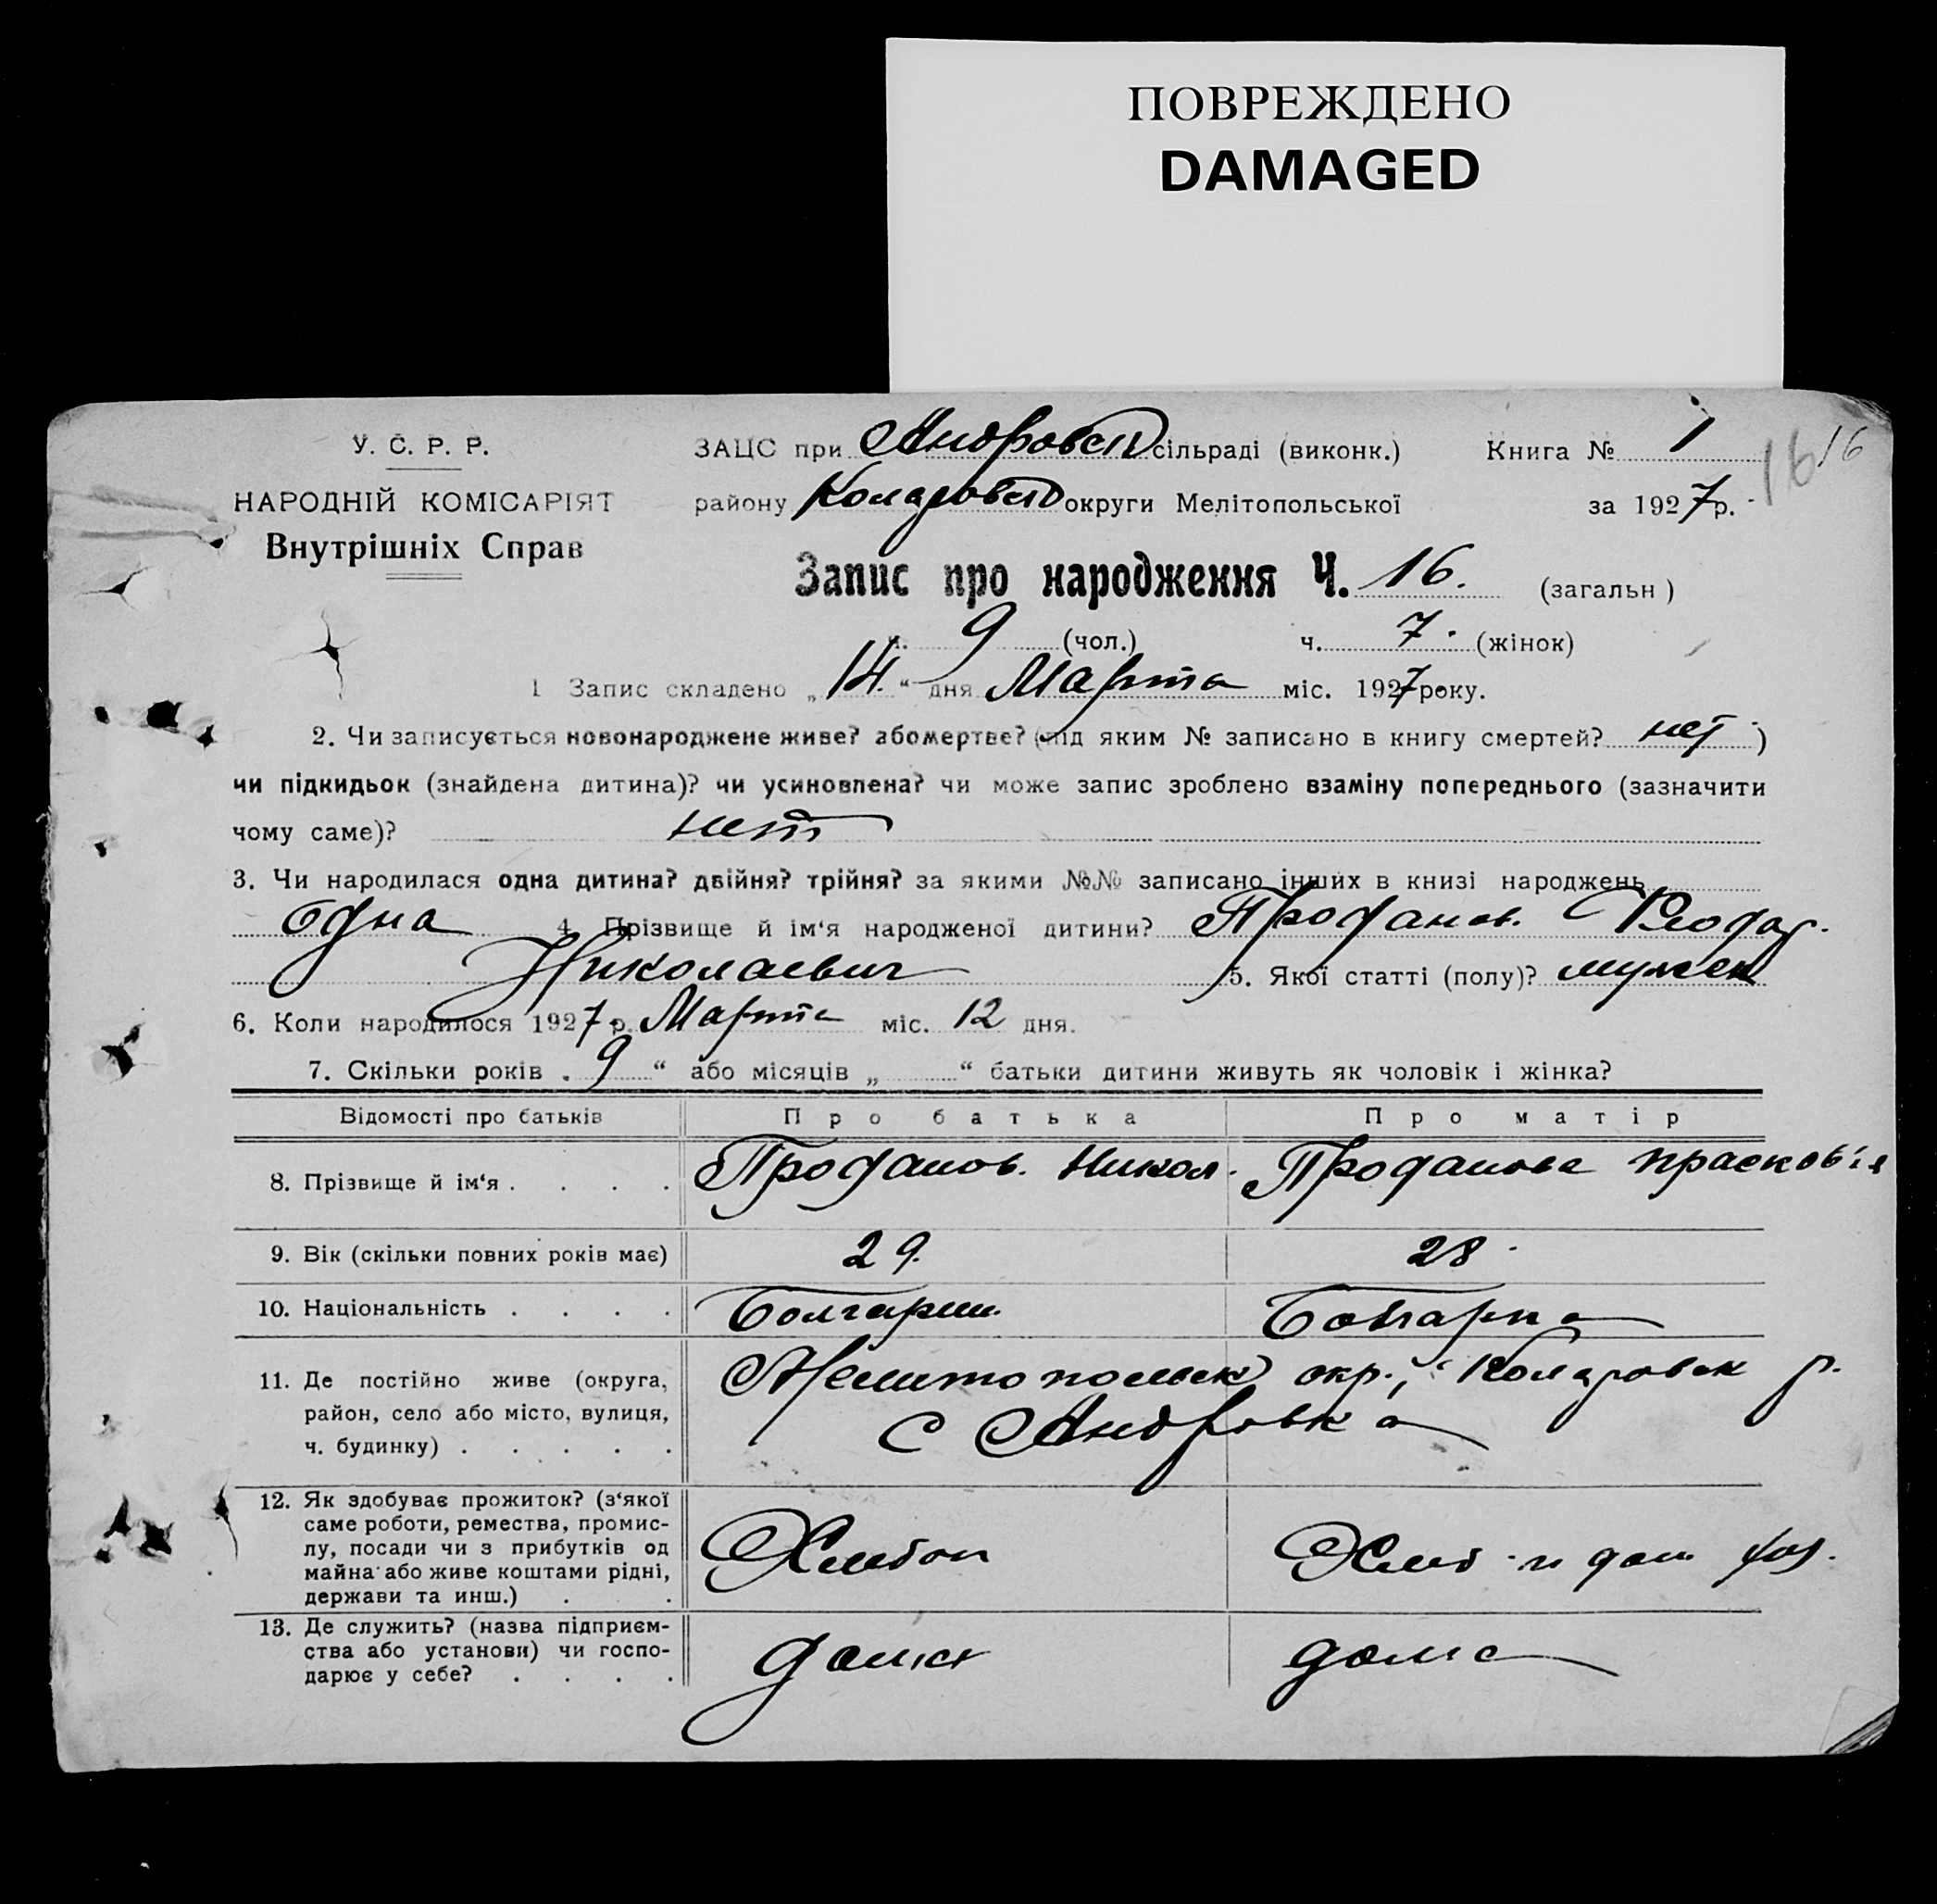 ПОВРЕЖДЕНО
DAMAGED
У. С. Р. Р.
НАРОДНІЙ КОМІСАРІЯТ
Внутрішніх Справ
ЗАЦС при Андровск сільраді (виконк.) Книга № 1
16 16
району Коларовск округи Мелітопольської за 1927 р.
Запис про народження Ч. 16. (загальн)
ч. 9 (чол.) ч. 7. (жінок)
1 Запис складено „14.“ дня Марта міс. 1927 року.
2. Чи записується новонароджене живе? або мертве? (під яким № записано в книгу смертей? нет)
чи підкидьок (знайдена дитина)? чи усиновлена? чи може запис зроблено взаміну попереднього (зазначити
чому саме)? нет
3. Чи народилася одна дитина? двійня? трійня? за якими №№ записано інших в книзі народжень
Одна 4. Прізвище й ім‘я народженої дитини? Проданов.
Николаевич 5. Якої статті (полу)? мужск
6. Коли народилося 1927 р. Марта міс. 12 дня.
7. Скільки років „9“ або місяців „ “ батьки дитини живуть як чоловік і жінка?
Відомості про батьків Про батька Про матір
8. Прізвище й ім‘я . . . . Проданов. Никол. Проданова Прасковія
9. Вік (скільки повних років має) 29. 28.
10. Національність . . . . Болгарин Болгарка
11. Де постійно живе (округа,
район, село або місто, вулиця,
ч. будинку) . . . . .
Мелитопольск окр., Коларовск р.
с Андровка
12. Як здобуває прожиток? (з‘якої
саме роботи, ремества, промис-
лу, посади чи з прибутків од
майна або живе коштами рідні,
держави та инш.) . .
Хлебоп Хлеб и дом хоз.
13. Де служить? (назва підприєм-
ства або установи) чи госпо-
дарює у себе? . . . .
дома дома